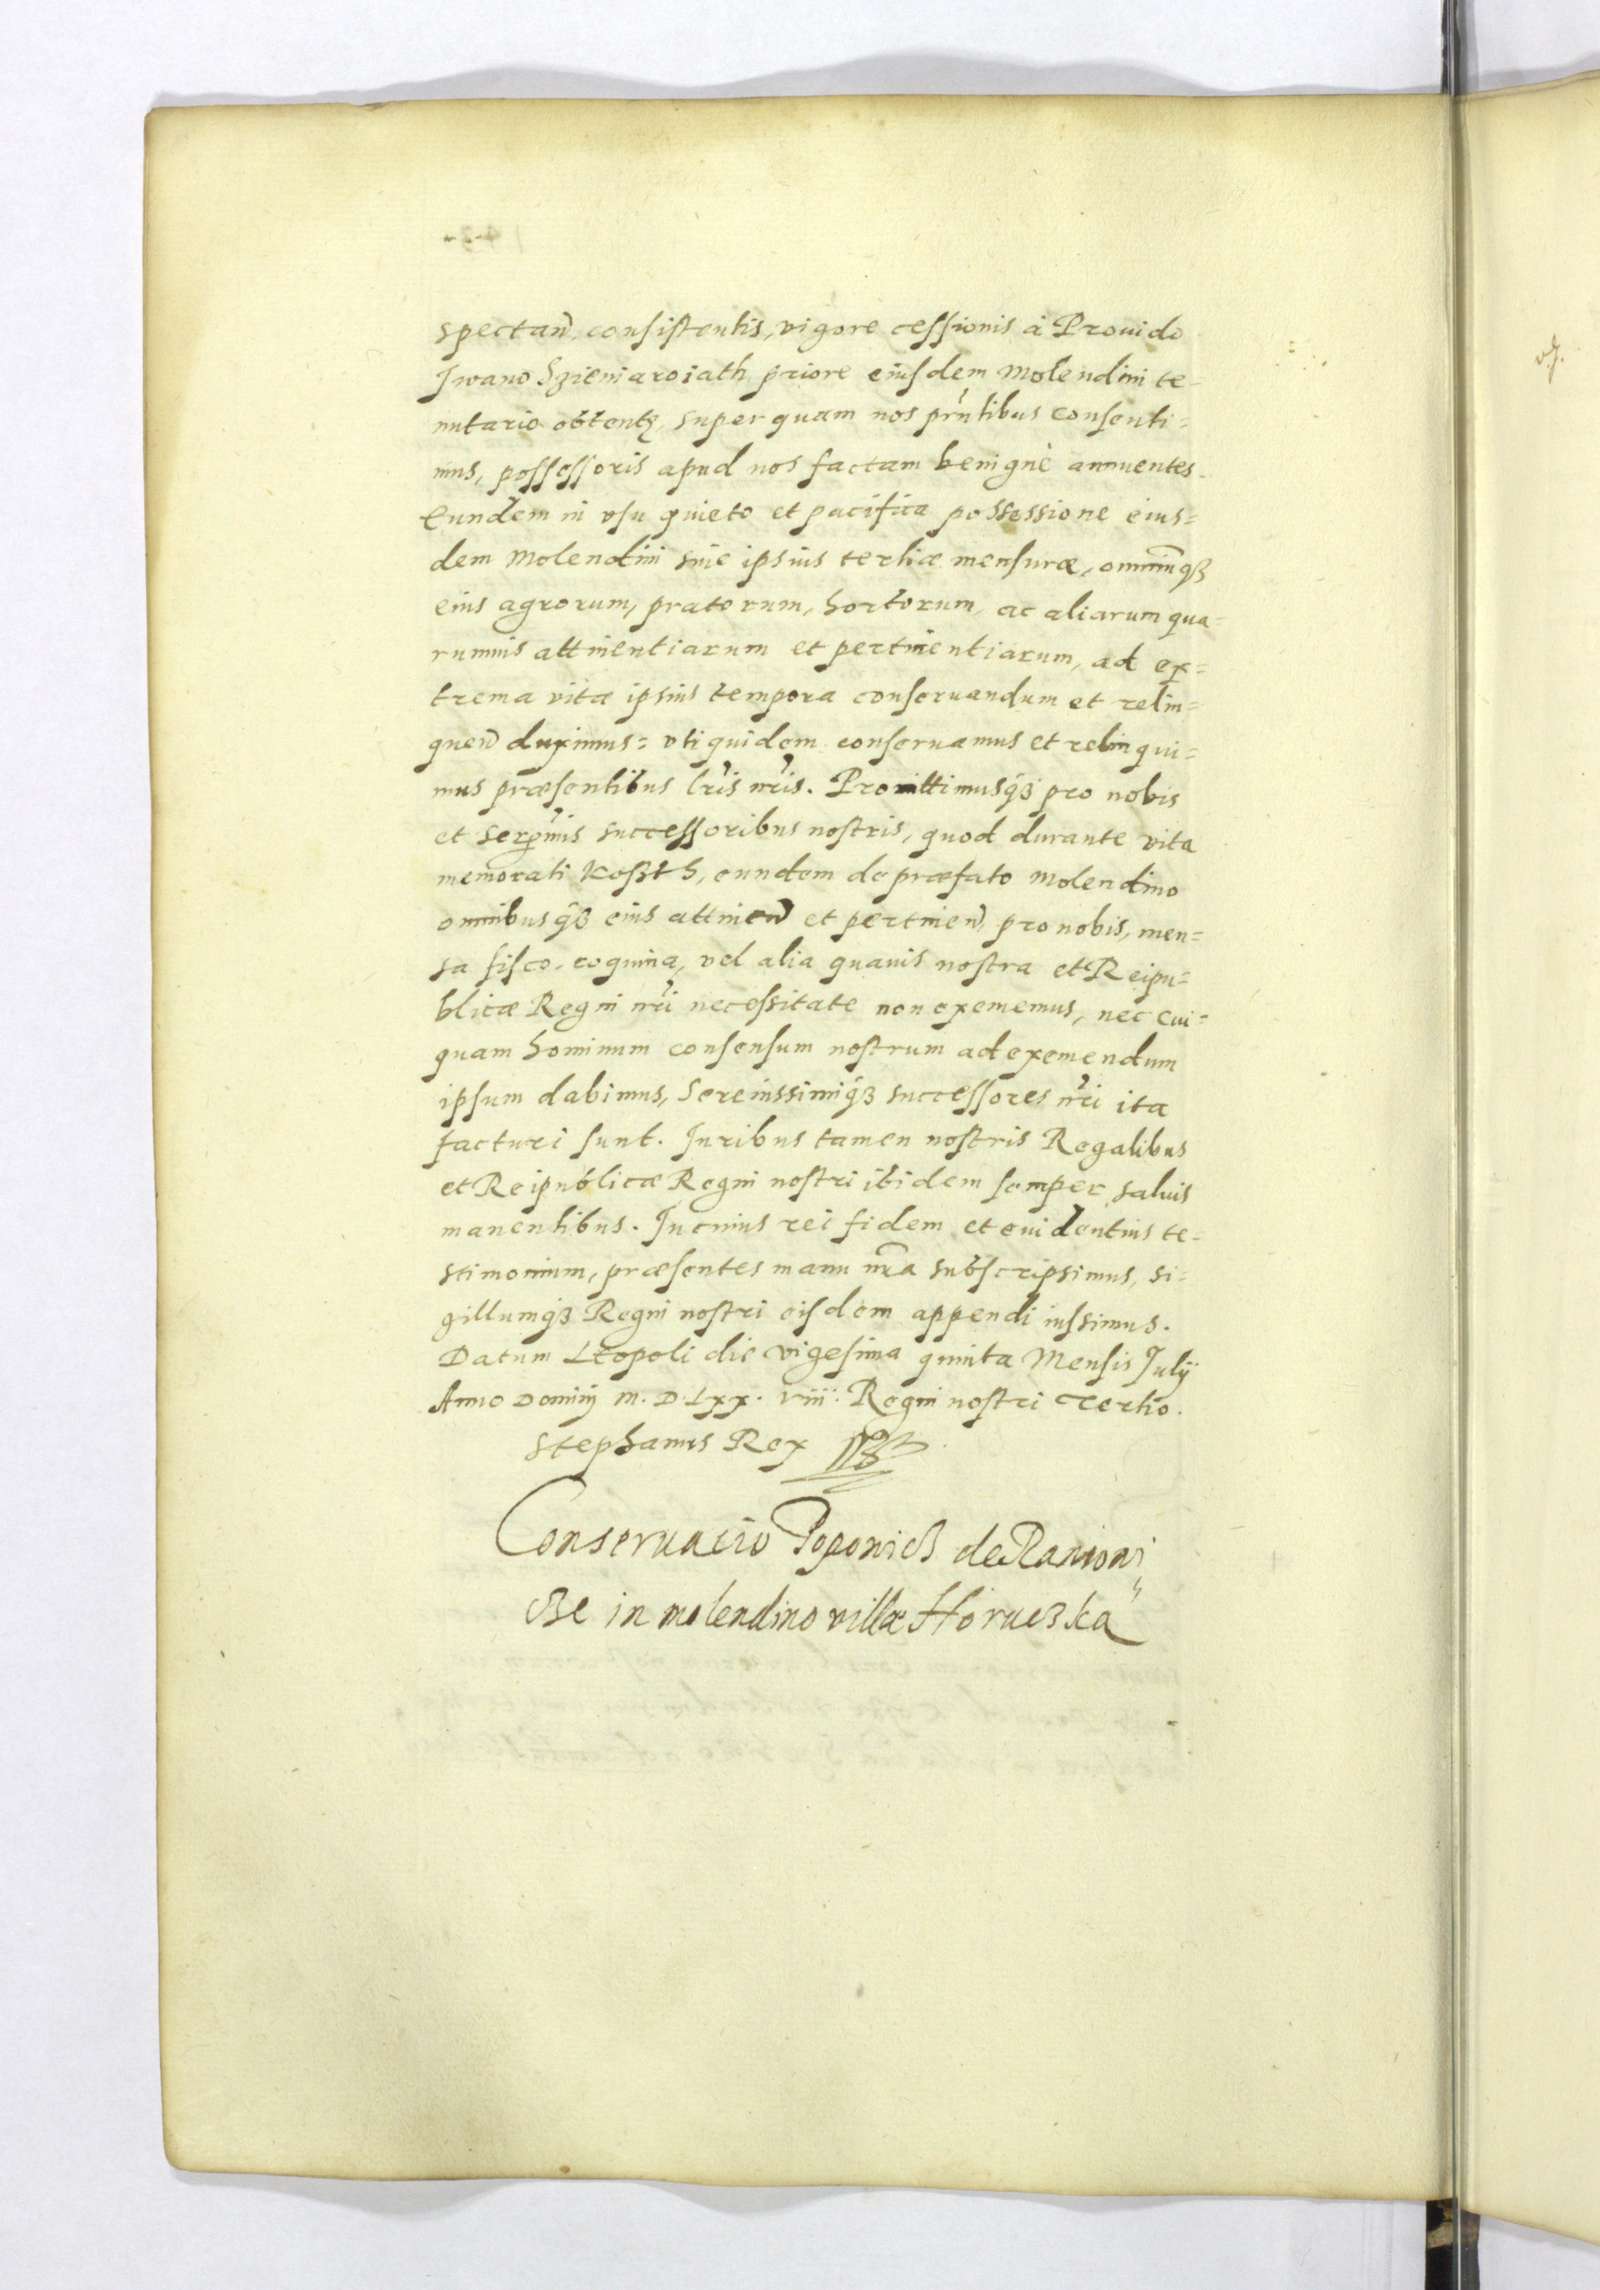 spectan̄, consistentis, vigore cessionis à Prouido
Iwano Szieniaroiath priore eiusdem Molendini te-
nutario obtentę, super quam nos pn̄tibus consenti=
mus, possessoris apud nos factam benignè annuentes.
Eundem in vsu quieto et pacifica possessione eius=
dem Molendini siue ipsius tertiæ mensuræ, omniūq́3
eius agrorum, pratorum, hortorum, ac aliarum qua=
rumuis attinentiarum et pertinentiarum, ad ex=
trema vitæ ipsius tempora conseruandum et relin=
quen̄ duximus= vti quidem conseruamus et relinqui=
mus præsentibus lr̄is nr̄is. Promittimusq́3 pro nobis
et Serēmis successoribus nostris, quod durante vita
memorati Kosßth, eundem de præfato Molendino
omnibusq́3 eius attinen̄ et pertinen̄, pro nobis, men=
sa fisco, coquina, vel alia quauis nostra et Reipu=
blicæ Regni nr̄i necessitate non exememus, nec cui=
quam hominum consensum nostrum ad exemendum
ipsum dabimus, Serenissimiq́3 successores nr̄i ita
facturi sunt. Iuribus tamen nostris Regalibus
et Reipublicæ Regni nostri ibidem semper saluis
manentibus. In cuius rei fidem et euidentius te-
stimonium, præsentes manu nr̄a subscripsimus, si=
gillumq́3 Regni nostri eisdem appendi iussimus.
Datum Leopoli die vigesima quinta Mensis Iulÿ
Anno Dominj M. D. Lxx. viii: Regni nostri Tertio.
Stephanus Rex
Conseruacio Popowicz de Ranioni
cze in molendino villæ Horuczka